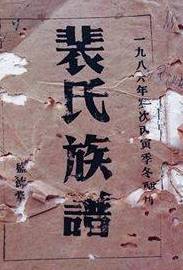 一九八六年岁次丙寅季冬
裴氏族譜